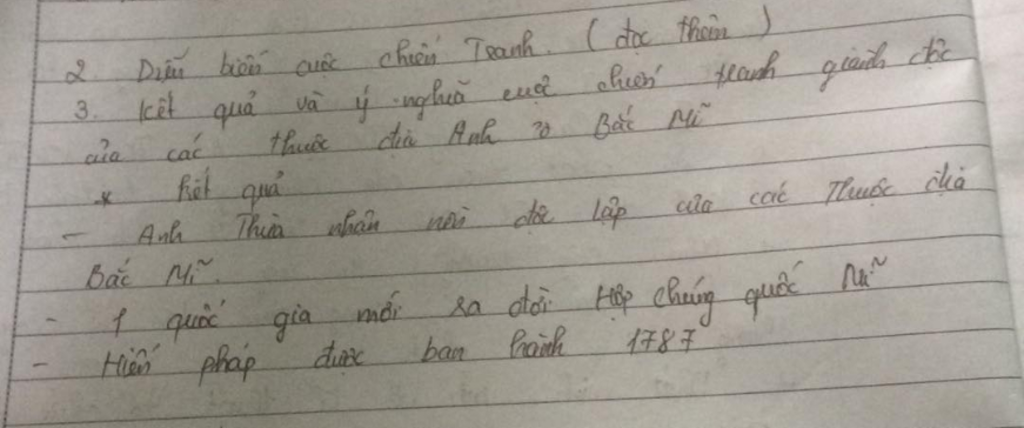 2 Diễn biến cuộc chiến Tranh. ( đọc thêm )
3. Kết quả và ý nghĩa cuộc chiến tranh giành độc
của các thuộc địa Anh ở Bắc Mĩ
* Kết quả
- Anh Thừa nhận nền độc lập của các Thuộc địa
Bắc Mĩ.
- 1 quốc gia mới ra đời Hợp chúng quốc Mĩ
- Hiến pháp được ban hành 1787